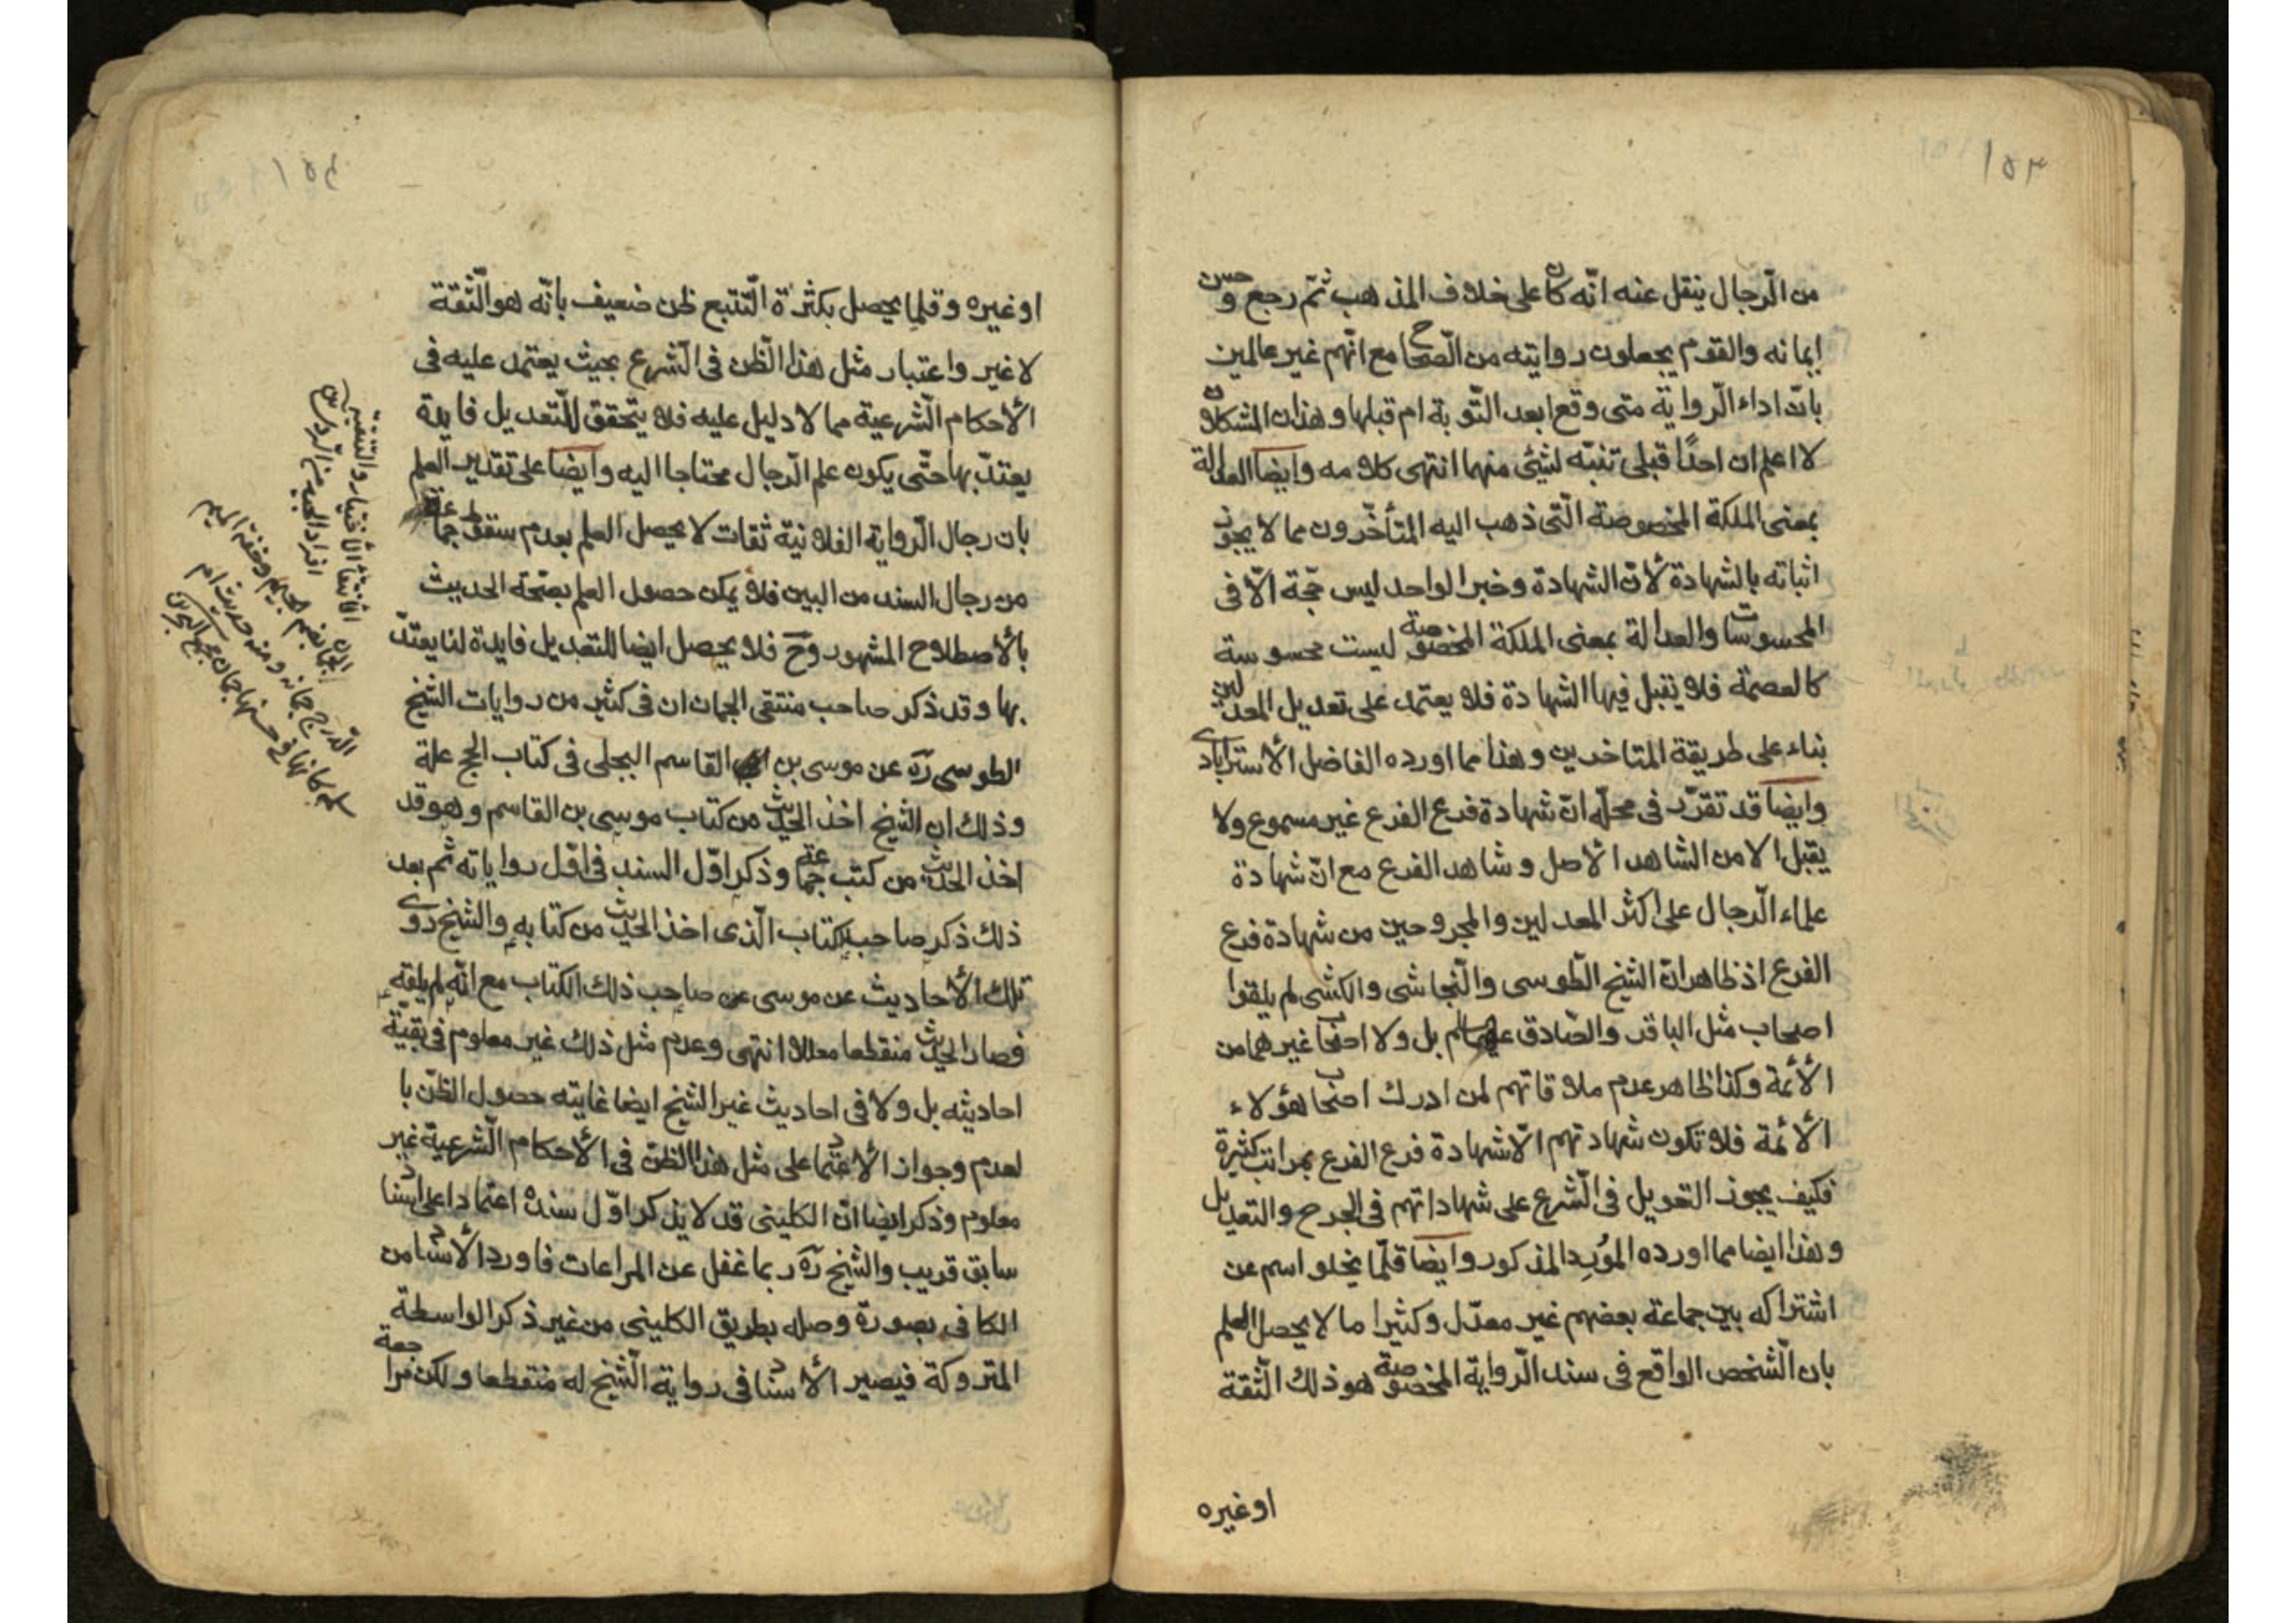 ١٥٣
من الرّجال ينقل عنه انّه كان على خلاف المذهب ثمّ رجع وحسن
إيمانه والقوم يجعلون روايته من الصّحاح مع انّهم غير عالمين
بانّ اداء الرّواية متى وقع ابعد التّوبة ام قبلها وهذان المشكلان
لا اعلم ان احدًا قبلى تنبّه لشئ منهما انتهى كلامه وايضا العدالة
بمعنى الملكة المخصوصة الّتى ذهب اليه المتأخّرون مما لا يجوز
اثباته بالشهادة لأنّ الشهادة وخبر الواحد ليس حجّة الّا فى
المحسوسات والعدالة بمعنى الملكة المخصوصة ليست محسوسة
كالعصمة فلا يقبل فيها الشهادة فلا يعتمد على تعديل المعدلين
بناء على طريقة المتاخرين وهذا مما اورده الفاضل الأسترابادى
وايضا قد تقرّر فى محلّه انّ شهادة فرع الفرع غير مسموع ولا
يقبل الا من الشاهد الأصل وشاهد الفرع مع انّ شهادة
علماء الرّجال على اكثر المعدلين والمجروحين من شهادة فرع
الفرع اذ ظاهر انّ الشيخ الطّوسى والنّجاشى والكشى لم يلقوا
اصحاب مثل الباقر والصّادق عليهما السلام بل ولا اصحاب غيرهما من
الأئمة وكذا ظاهر عدم ملاقاتهم لمن ادرك اصحاب هؤلاء
الأئمة فلا تكون شهادتهم الّا شهادة فرع الفرع بمراتب كثيرة
فكيف يجوز التعويل فى الشّرع على شهاداتهم فى الجرح والتعديل
وهذا ايضا مما اورده المورد المذكور وايضا قلّما يخلو اسم عن
اشتراكه بين جماعة بعضهم غير معدّل وكثيرا ما لا يحصل العلم
بان الشّخص الواقع فى سند الرّواية المخصوصة هو ذلك الثّقة
او غيره
١٥٤
او غيره وقلما يحصل بكثرة التّتبع ظن ضعيف بانّه هو الثّقة
لا غير واعتبار مثل هذا الظّن فى الشّرع بحيث يعتمد عليه فى
الأحكام الشّرعية مما لا دليل عليه فلا يتحقق للتّعديل فايدة
يعتدّ بها حتّى يكون علم الرّجال محتاجا اليه وايضا على تقدير العلم
بان رجال الرّواية الفلانية ثقات لا يحصل العلم بعدم سقوط جماعة
من رجال السند من البين فلا يمكن حصول العلم بصحّة الحديث
بالأصطلاح المشهور وح فلا يحصل ايضا للتعديل فايدة لنا يعتدّ
بها وقد ذكر صاحب منتقى الجمان ان فى كثير من روايات الشيخ
الطوسى ره عن موسى بن القاسم البجلى فى كتاب الحج علة
وذلك ان الشيخ اخذ الحديث من كتاب موسى بن القاسم وهو قد
اخذ الحديث من كتب جماعة وذكر اوّل السند فى اوّل رواياته ثم بعد
ذلك ذكر صاحب الكتاب الّذى اخذ الحديث من كتابه والشيخ روى
تلك الأحاديث عن موسى عن صاحب ذلك الكتاب مع انّه لم يلقه
فصار الحديث منقطعا معللا انتهى وعدم مثل ذلك غير معلوم فى بقيّة
احاديثه بل ولا فى احاديث غير الشيخ ايضا غايته حصول الظنّ با
لعدم وجواز الأعتماد على مثل هذا الظنّ فى الأحكام الشّرعية غير
معلوم وذكر ايضا انّ الكلينى قد لا يذكر اوّل سنده اعتمادا على اسناد
سابق قريب والشيخ ره ربما غفل عن المراعات فاورد الأسناد من
الكافى بصورة وصله بطريق الكلينى من غير ذكر الواسطة
المتروكة فيصير الأسناد فى رواية الشّيخ له منقطعا ولكن مراجعة